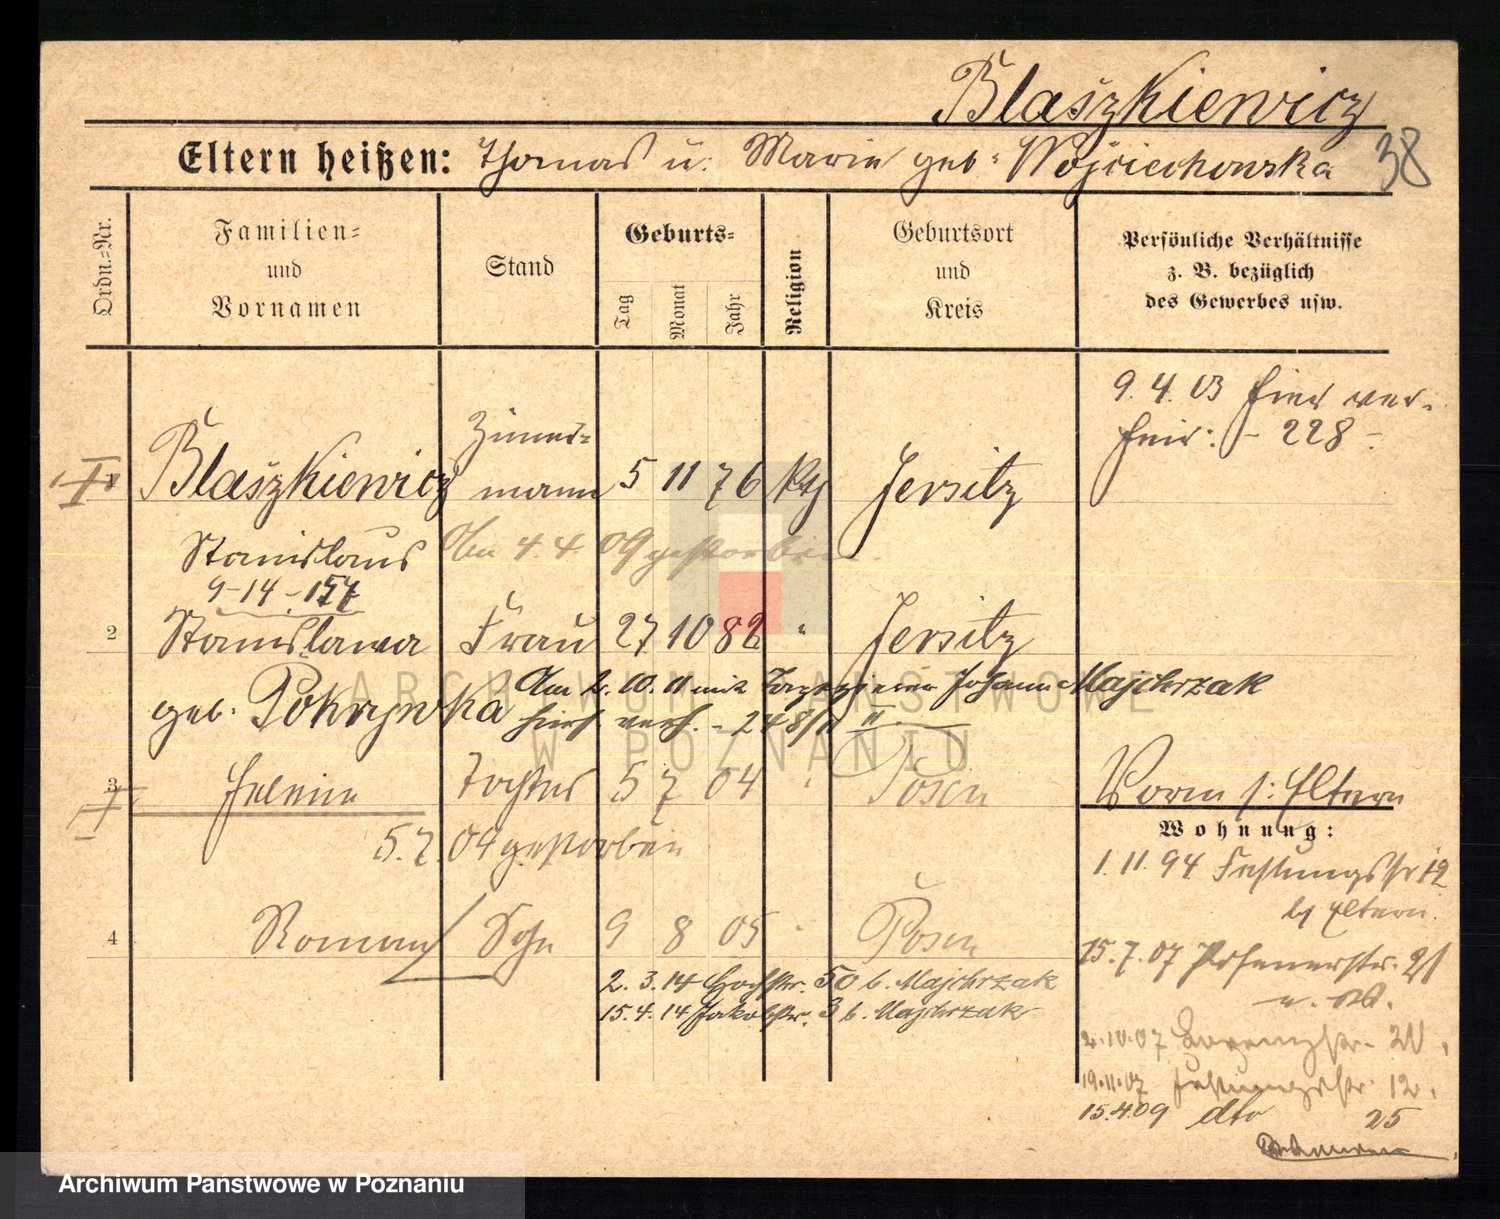 Blaszkiewicz
Eltern heißen: Thomas u. Marie geb. Wojciechowska 38
Ordn.-Nr.
Familien-
und
Vornamen
Stand
Geburts-
Tag
Monat
Jahr
Religion
Geburtsort
und
Kreis
Persönliche Verhältnisse
z. B. bezüglich
des Gewerbes usw.
9. 4. 03 hier ver-
heir: - 228 -
Zimmer-
1 Blaszkiewicz mann 5 11 76 Kth Jersitz
Stanislaus Am 4. 4. 09 gestorben
9-14-157
2 Stanislawa Frau 27 10 82 " Jersitz
geb. Pokrywka Am 2. 10. 11 mit Johann Majchrzak
hier verh. - 248/11 II.
3 Helene Tochter 5 7 04 " Posen
5. 7. 04 gestorben
4 Roman Sohn 9 8 05 " Posen
2. 3. 14 Hochstr. 50 b. Majchrzak
15. 4. 14 Jakobstr. 3 b. Majchrzak
Vorm s: Eltern
Wohnung:
1. 11. 94 Festungsstr 12
b/ Eltern.
15. 7. 07 Posenerstr. 21
2. 10. 07 20.
19. 11. 07 Festungsstr. 12.
15. 4. 09 dto 25
ARCHIWUM PAŃSTWOWE
W POZNANIU
Archiwum Państwowe w Poznaniu